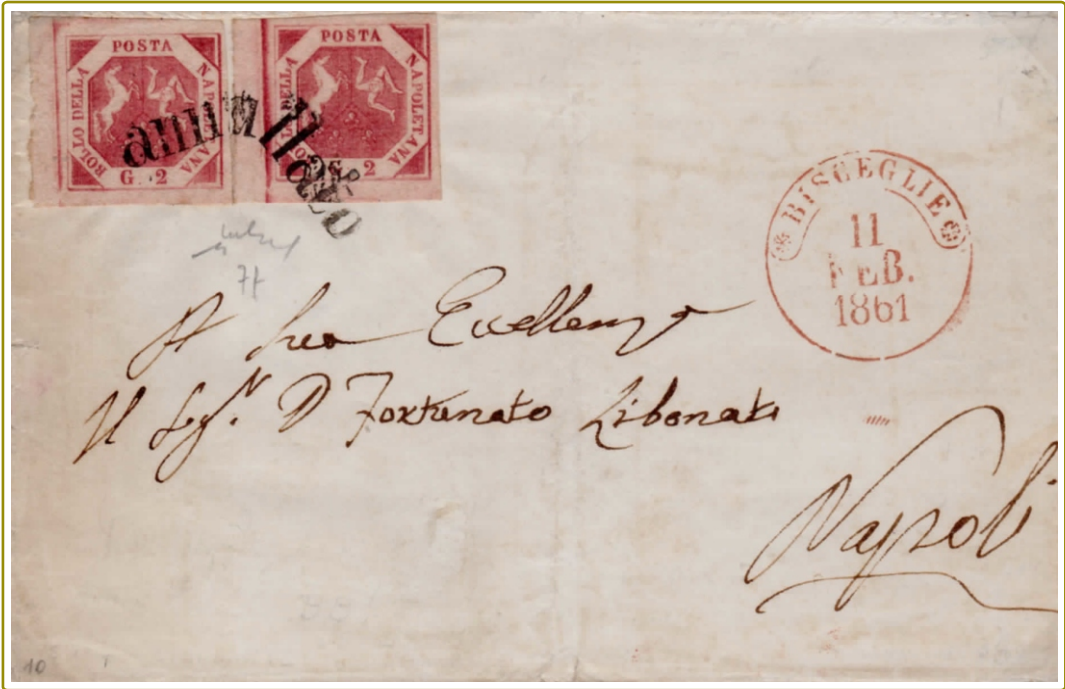 POSTA
BOLLO DELLA
NAPOLETANA
G. 2
POSTA
BOLLO DELLA
NAPOLETANA
G. 2
annullato
BISCEGLIE
11
FEB.
1861
A Sua Eccellenza
Il Sigr. D Fortunato Libonati
Napoli
10